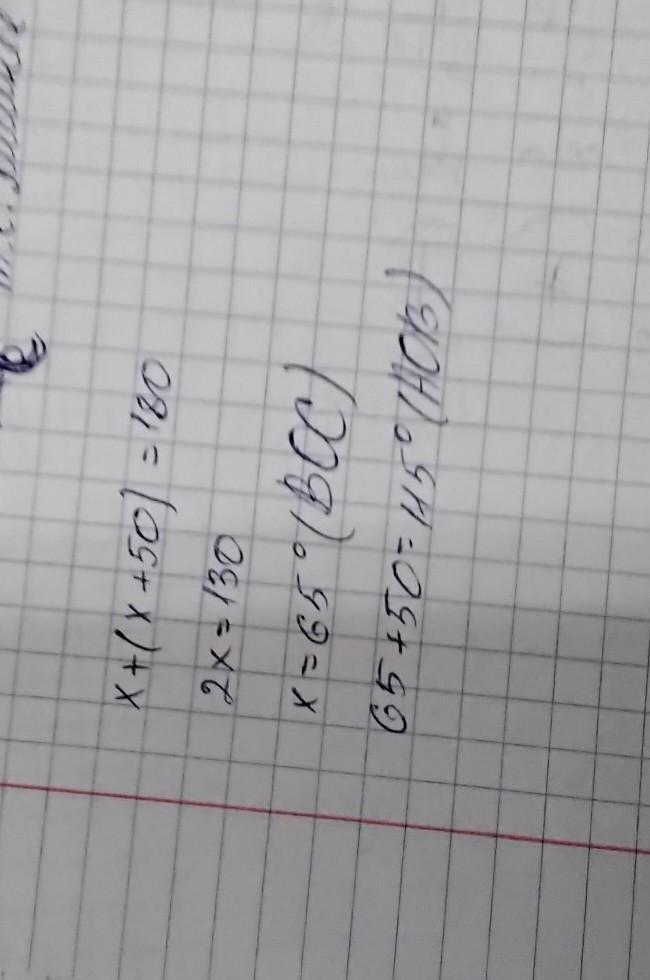 x+(x+50)=180
2x=130
x=65°(BOC)
65+50=115°(AOB)